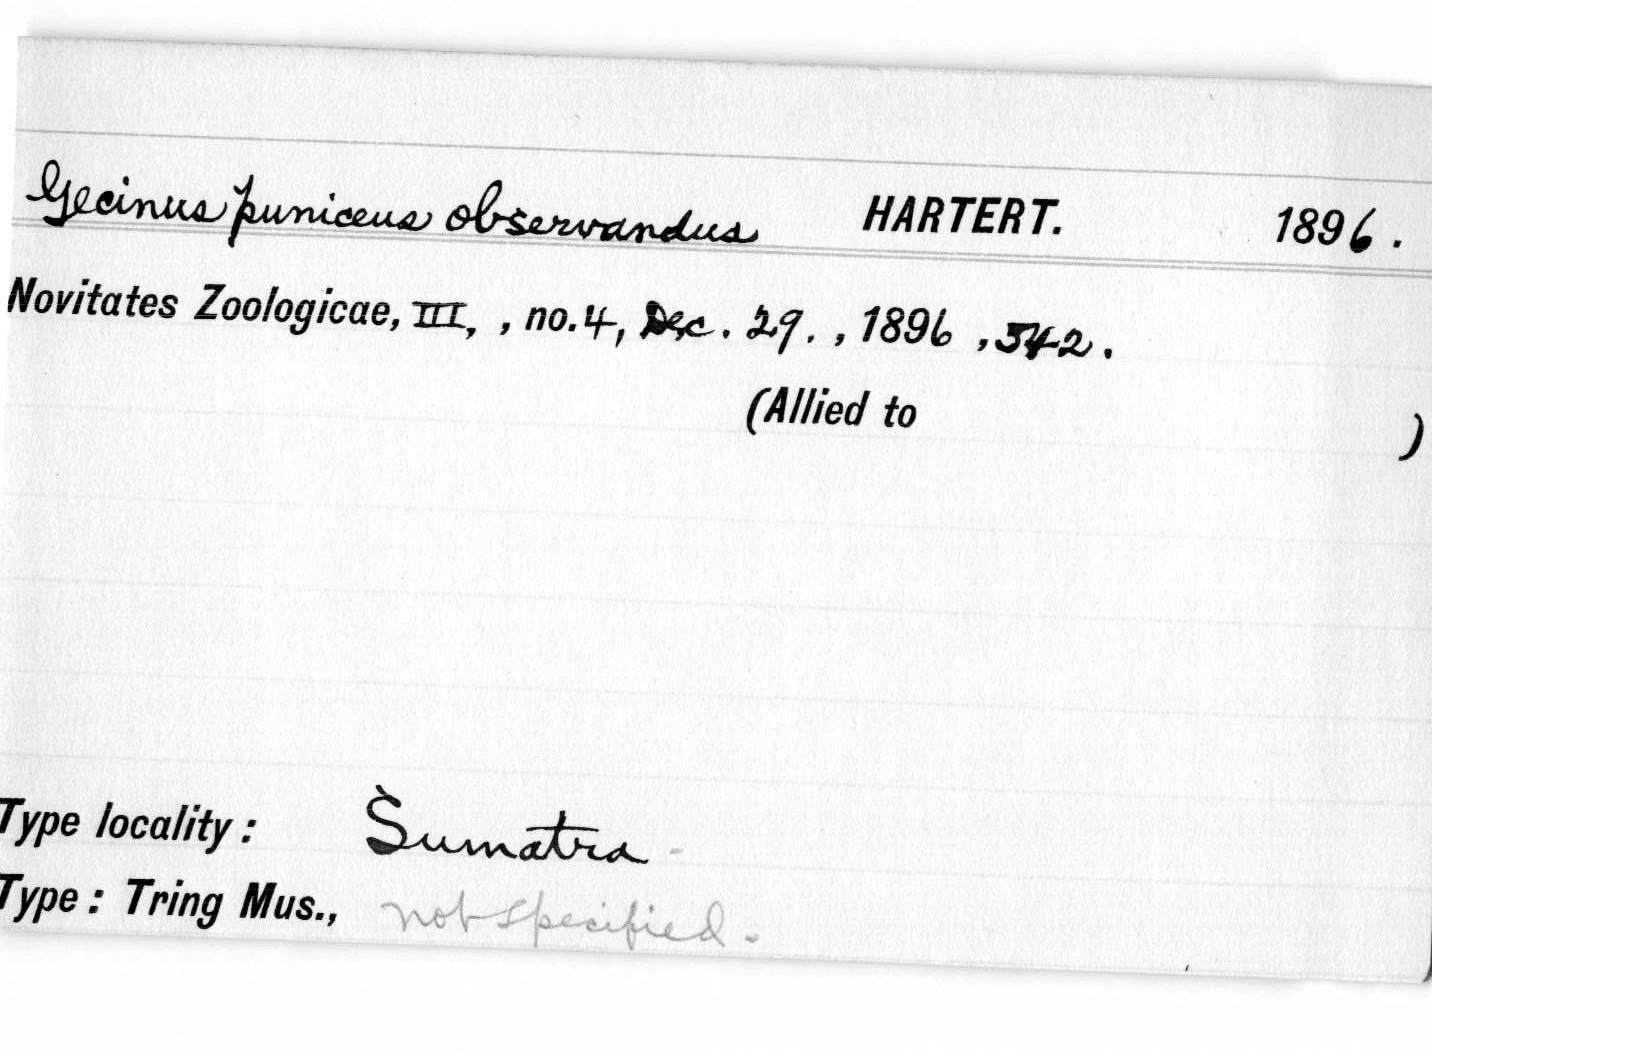 Gecinus puniceus observandus HARTERT. 1896.
Novitates Zoologicae, III, , no. 4, Dec. 29. , 1896 , 542.
(Allied to )
Type locality: Sumatra -
Type: Tring Mus., not specified.